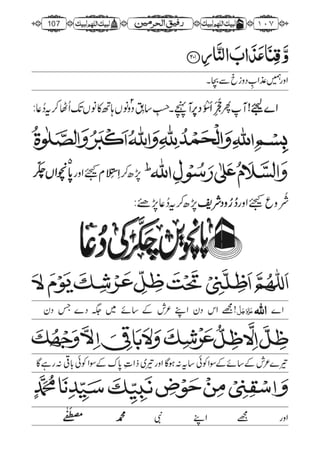 107 لبیک اللھم لبیک رفیق الحرمین لبیک اللھم لبیک ۱۰۷
وَّقِنَا عَذَابَ النَّارِ ﴿۲۰۱﴾
اور ہمیں عذابِ دوزخ سے بچا۔
اے لیجئے! آپ پھر حجرِ اسود پر آپہنچے۔ حسبِ سابق دونوں ہاتھ کانوں تک اُٹھا کر یہ دُعا:
بِسْمِ اللّٰهِ وَالْحَمْدُ لِلّٰهِ وَاللّٰهُ اَكْبَرُ وَالصَّلٰوةُ
وَالسَّلَامُ عَلٰى رَسُوْلِ اللّٰهِ ط پڑھ کر اِستِلام کیجئے اور پانچواں چکر
شُروع کیجئے اور دُرُود شریف پڑھ کر یہ دُعا پڑھئے:
پانچویں چکر کی دُعا
اَللّٰهُمَّ اَظِلَّنِيْ تَحْتَ ظِلِّ عَرْشِكَ يَوْمَ لَا
اے اللّٰہ عَزَّوَجَلَّ! مجھے اس دن اپنے عرش کے سائے میں جگہ دے جس دن
ظِلَّ اِلَّا ظِلُّ عَرْشِكَ وَلَا بَاقِيَ اِلَّا وَجْهُكَ
تیرے عرش کے سائے کے سوا کوئی سایہ نہ ہوگا اور تیری ذاتِ پاک کے سوا کوئی باقی نہ رہے گا
وَاسْقِنِيْ مِنْ حَوْضِ نَبِيِّكَ سَيِّدِنَا مُحَمَّدٍ
اور مجھے اپنے نبی محمد مصطفٰے